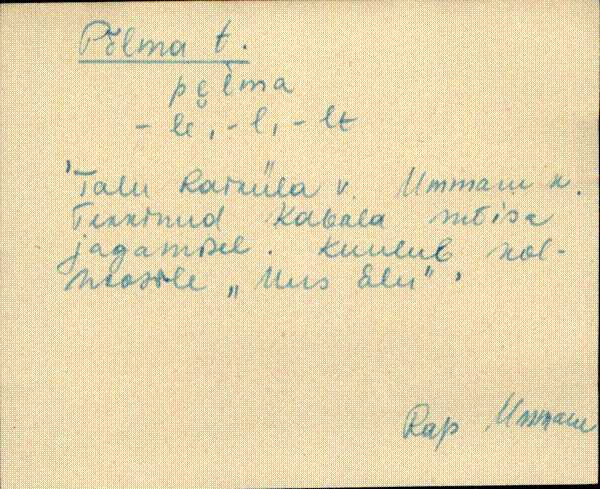 Põlma t.
pe̮lma
- le, -l, - lt
"Talu Raiküla v. Ummaru k.
Tekkinud Kabala mõisa
jagamisel. Kuulub kol-
hoosile „Uus Elu".
Rap Ummaru